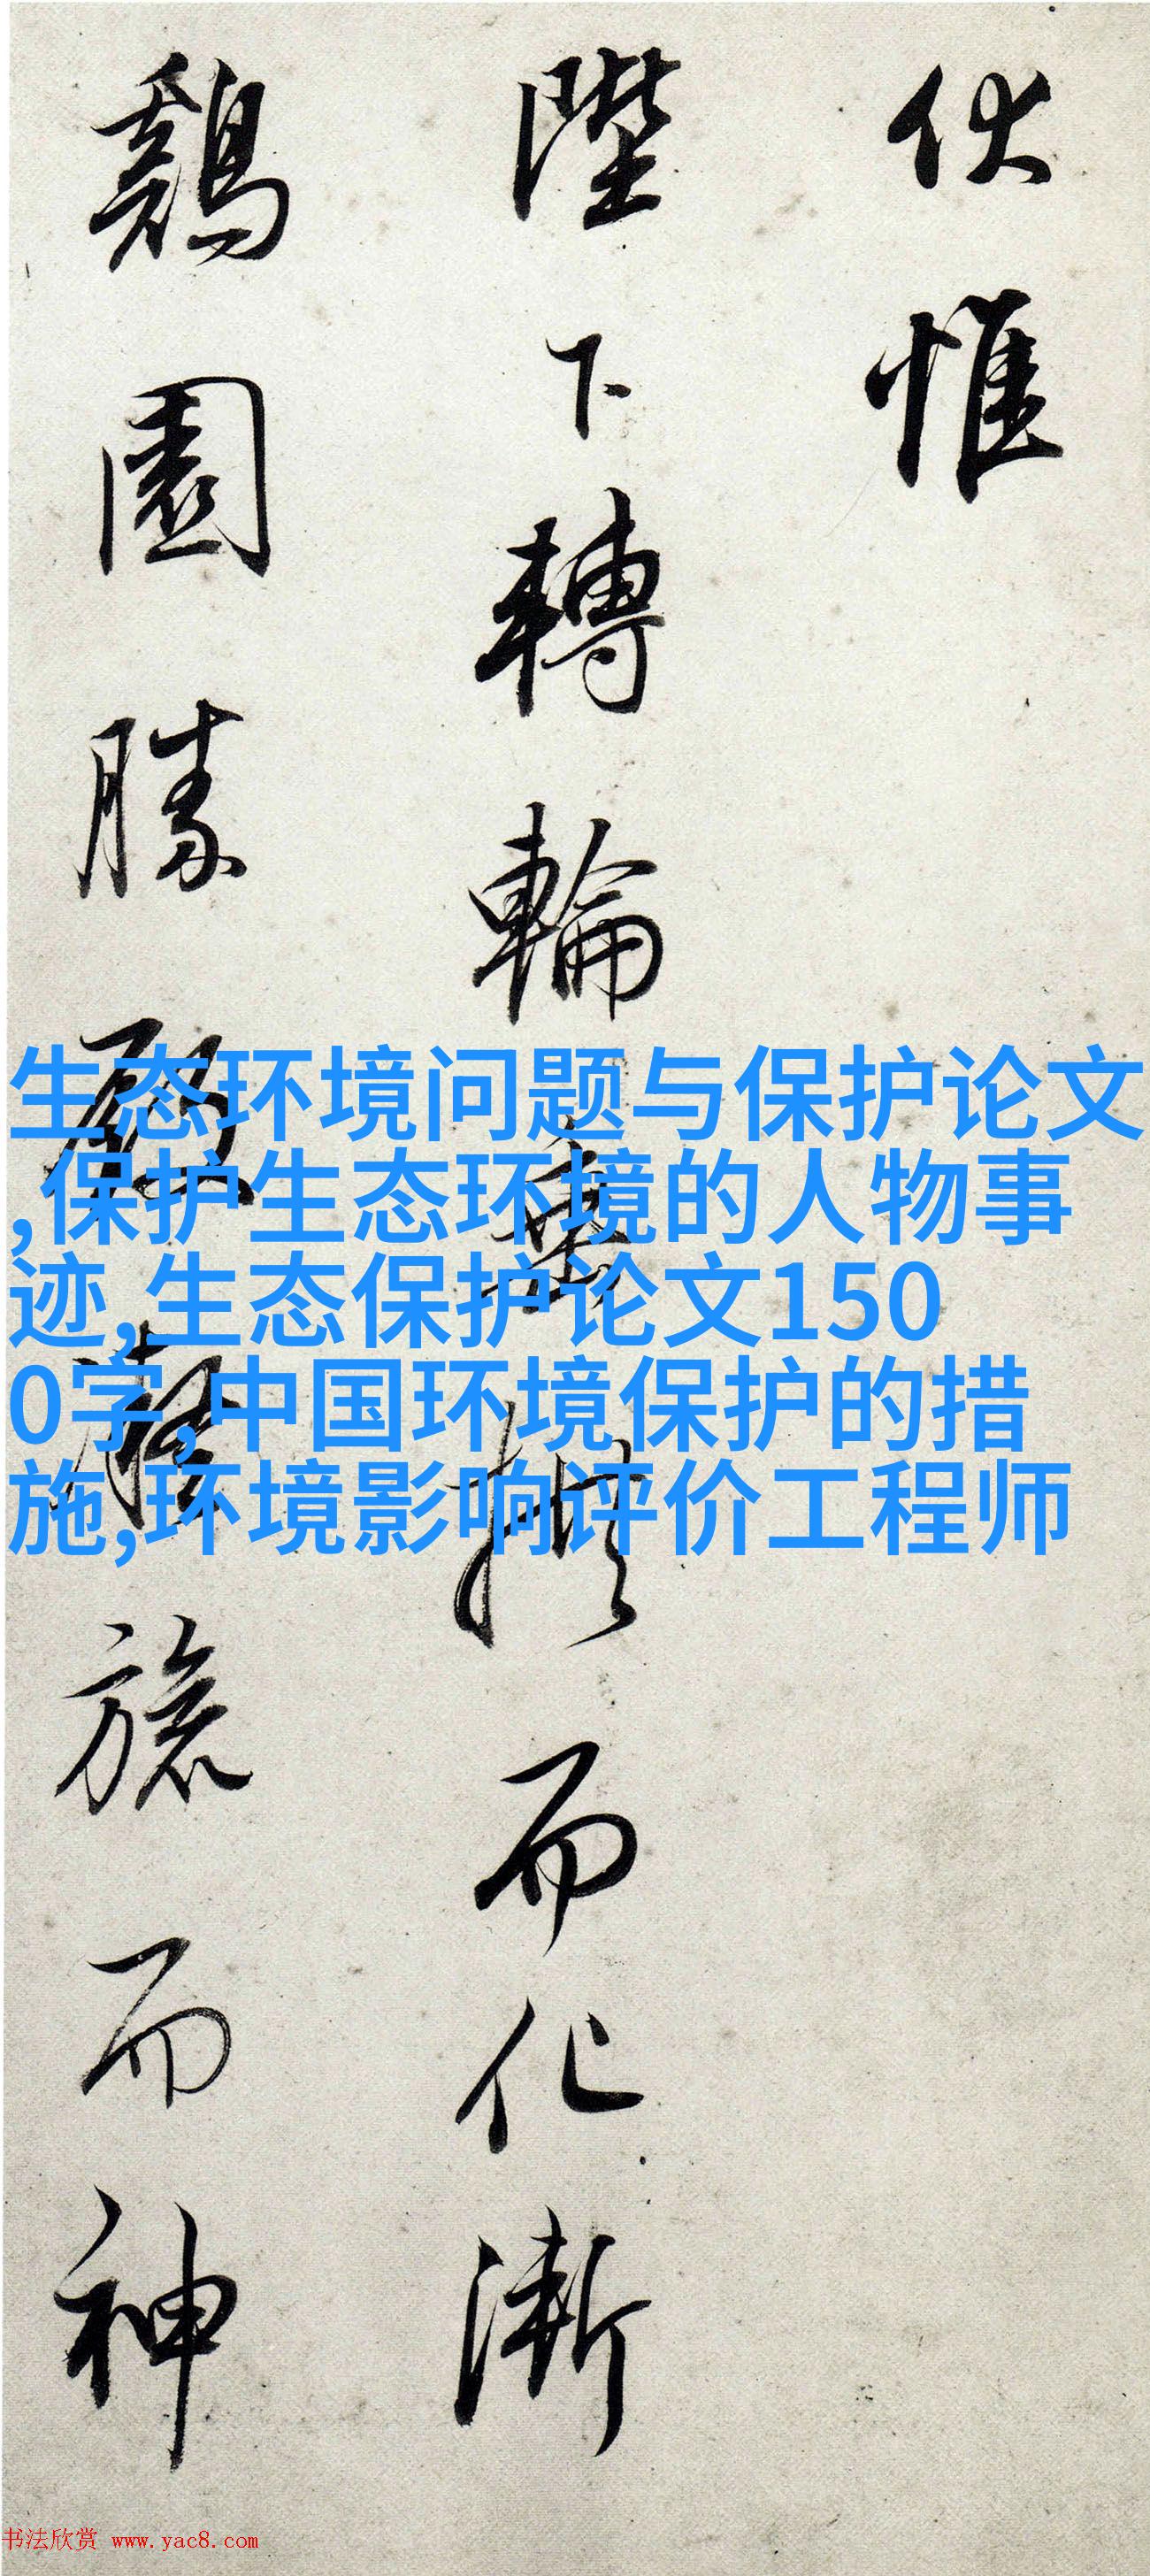 伏惟
陛下轉輪垂拱而化漸
鷄園勝殿薩旅而神
生态环境问题与保护论文
,保护生态环境的人物事
迹,生态保护论文150
0字,中国环境保护的措
施,环境影响评价工程师
书法欣赏 www.yac8.com